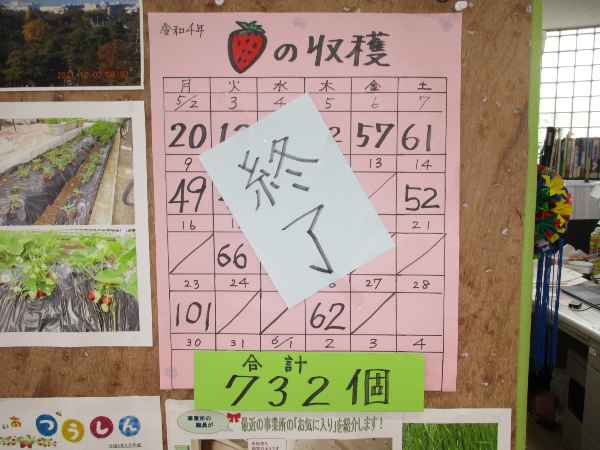 令和4年
の収穫
月 火 水 木 金 土
5/2 3 4 5 6 7
20 57 61
9 13 14
49 52
16 21
66
23 24 27 28
101 62
30 31 6/1 2 3 4
終了
合計
732個
つうしん
事業所の
職員が
最近の事業所の「お気に入り」を紹介します!